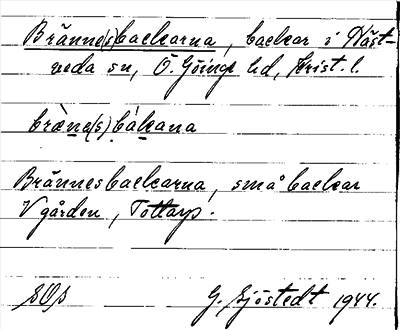 Bränne(s)backarna, backar i Häst-
veda sn, Ö. Göinge hd, Krist. l.
bræ̀ne(s)bákana
Brännesbackarna, små backar
V gården, Tottarp.
SOS G. Sjöstedt 1944.